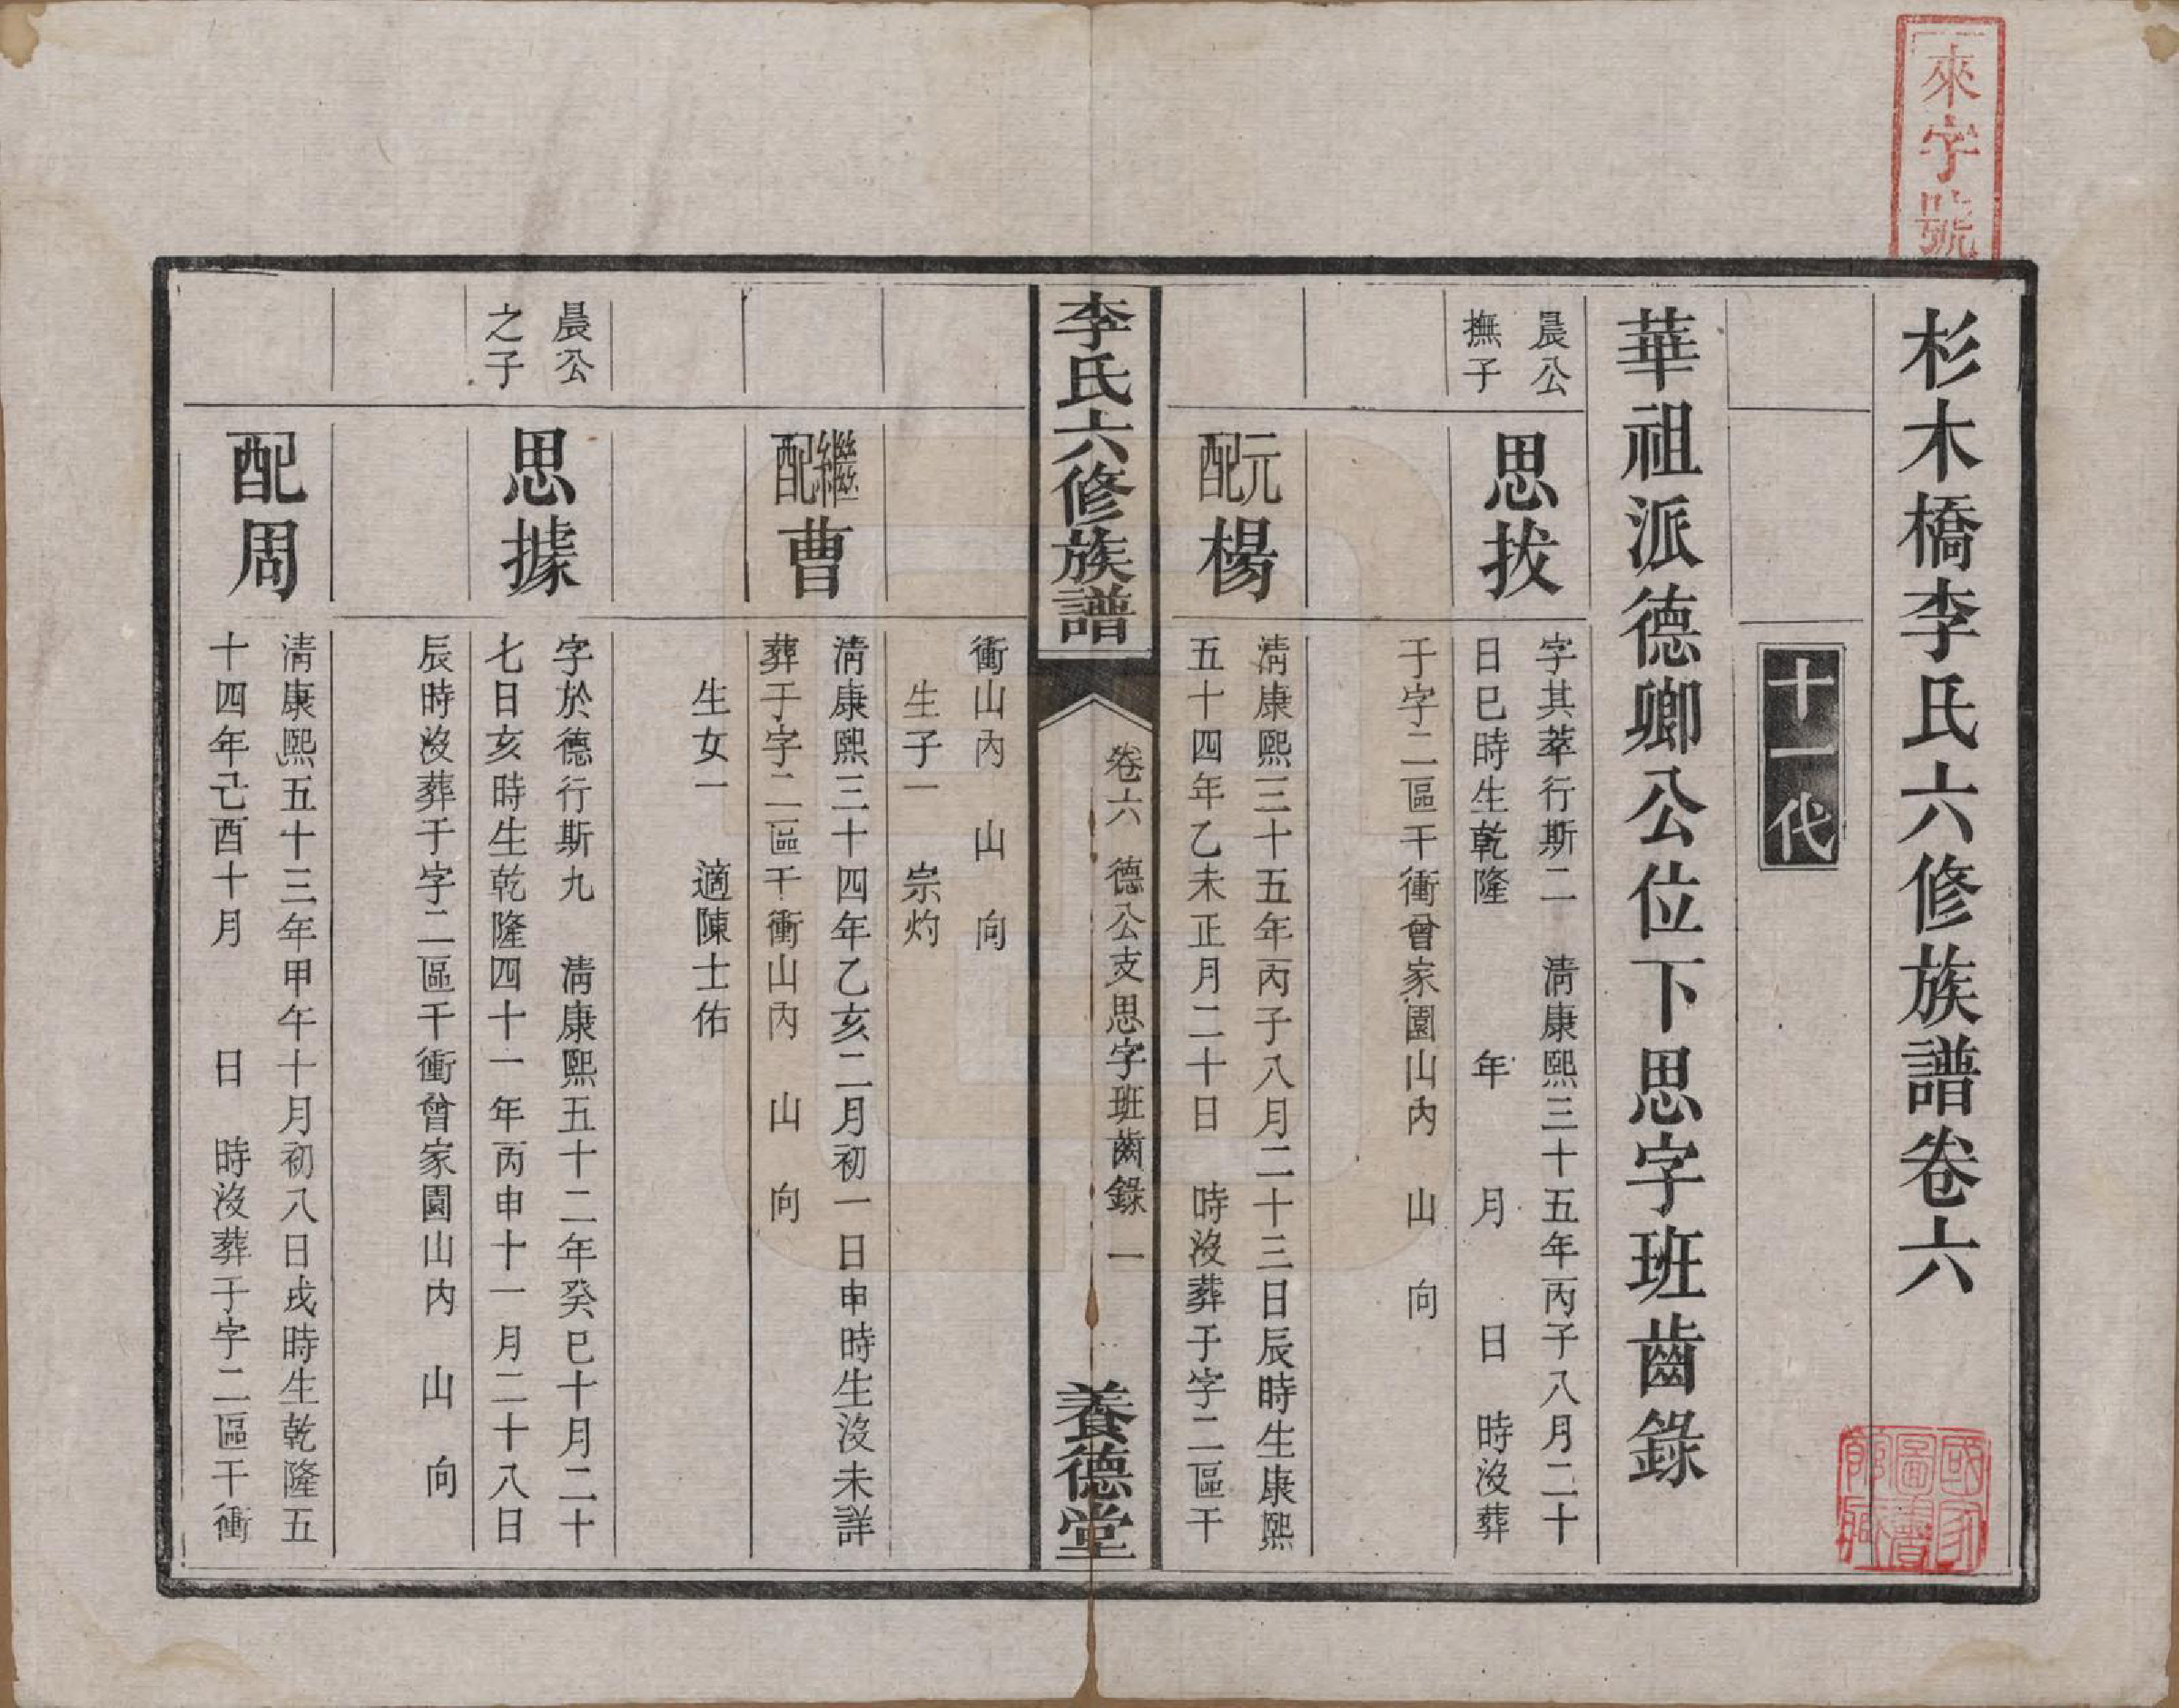 來字號
杉木橋李氏六修族譜卷六
國家圖書館藏
十一代
華祖派德卿公位下思字班齒錄
晨公
撫子
思拔
字其萃行斯二　清康熙三十五年丙子八月二十
日巳時生乾隆　年　月　日　時沒葬
于字二區干衝曾家園山內　山　向
元配楊
清康熙三十五年丙子八月二十三日辰時生康熙
五十四年乙未正月二十日　時沒葬于字二區干
李氏六修族譜
卷六　德公支思字班齒錄　一
養德堂
衝山內　山　向
生子一　宗灼
繼配曹
清康熙三十四年乙亥二月初一日申時生沒未詳
葬于字二區干衝山內　山　向
生女一　適陳士佑
晨公
之子
思據
字於德行斯九　清康熙五十二年癸巳十月二十
七日亥時生乾隆四十一年丙申十一月二十八日
辰時沒葬于字二區干衝曾家園山內　山　向
配周
清康熙五十三年甲午十月初八日戌時生乾隆五
十四年己酉十月　日　時沒葬于字二區干衝